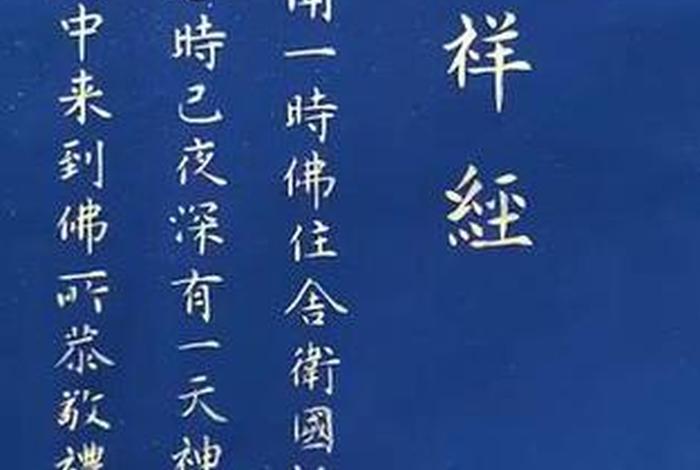 祥經
一時佛住舍衛國
時已夜深有一天神
中来到佛所恭敬禮